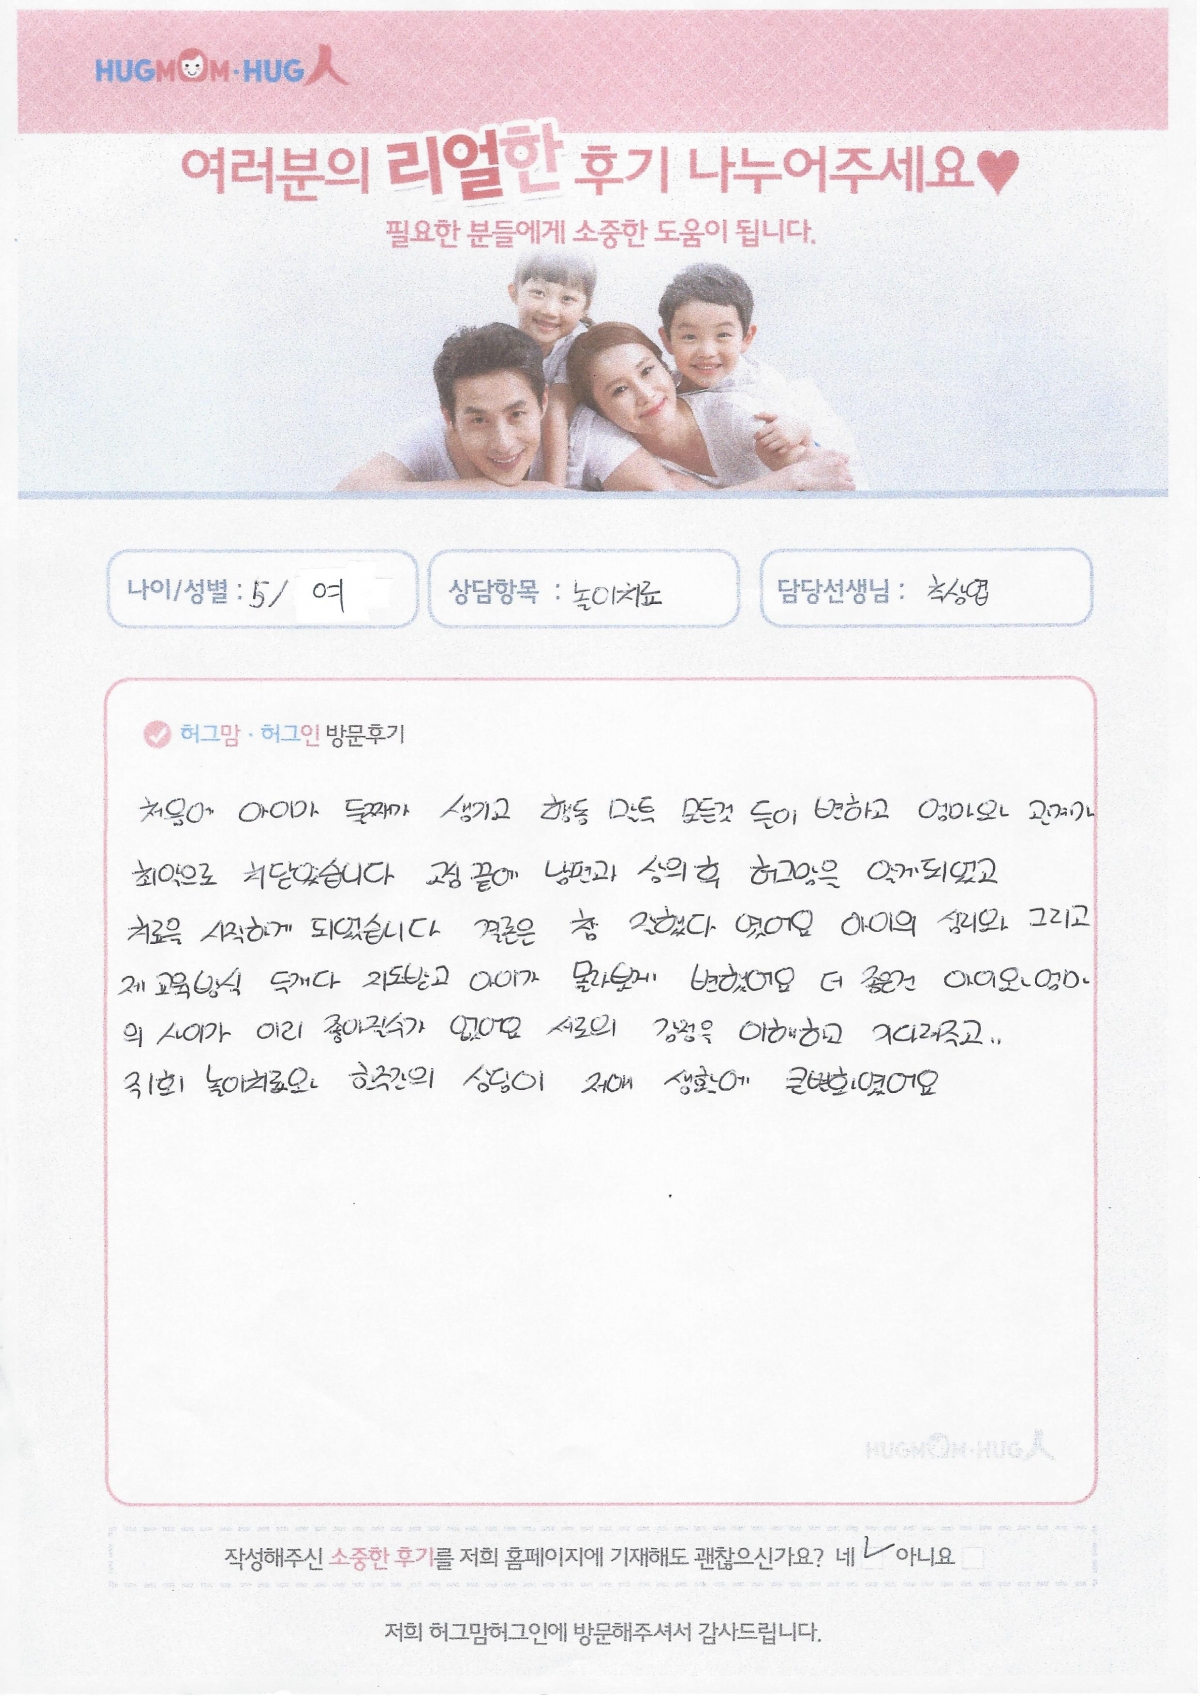 HUGMOM·HUG人
여러분의 리얼한 후기 나누어주세요♥
필요한 분들에게 소중한 도움이 됩니다.
나이/성별 : 5/ 여
상담항목 : 놀이치료
담당선생님 : 상엽
허그맘·허그인 방문후기
처음에 아이가 둘째가 생기고 행동 말투 모든것 들이 변하고 엄마와 관계가
최악으로 치닫았습니다 고심 끝에 남편과 상의 후 허그맘을 알게되었고
치료을 시작하게 되었습니다 결론은 참 잘했다 였어요 아이의 심리와 그리고
제 교육방식 두개다 지도받고 아이가 몰라보게 변했어요 더 좋은건 아이와 엄마
의 사이가 이리 좋아질수가 없어요 서로의 감정을 이해하고 기다려주고..
놀이치료와 상담이 저애 생활에 큰변화였어요
HUGMOM·HUG人
작성해주신 소중한 후기를 저희 홈페이지에 기재해도 괜찮으신가요? 네 아니요
저희 허그맘허그인에 방문해주셔서 감사드립니다.